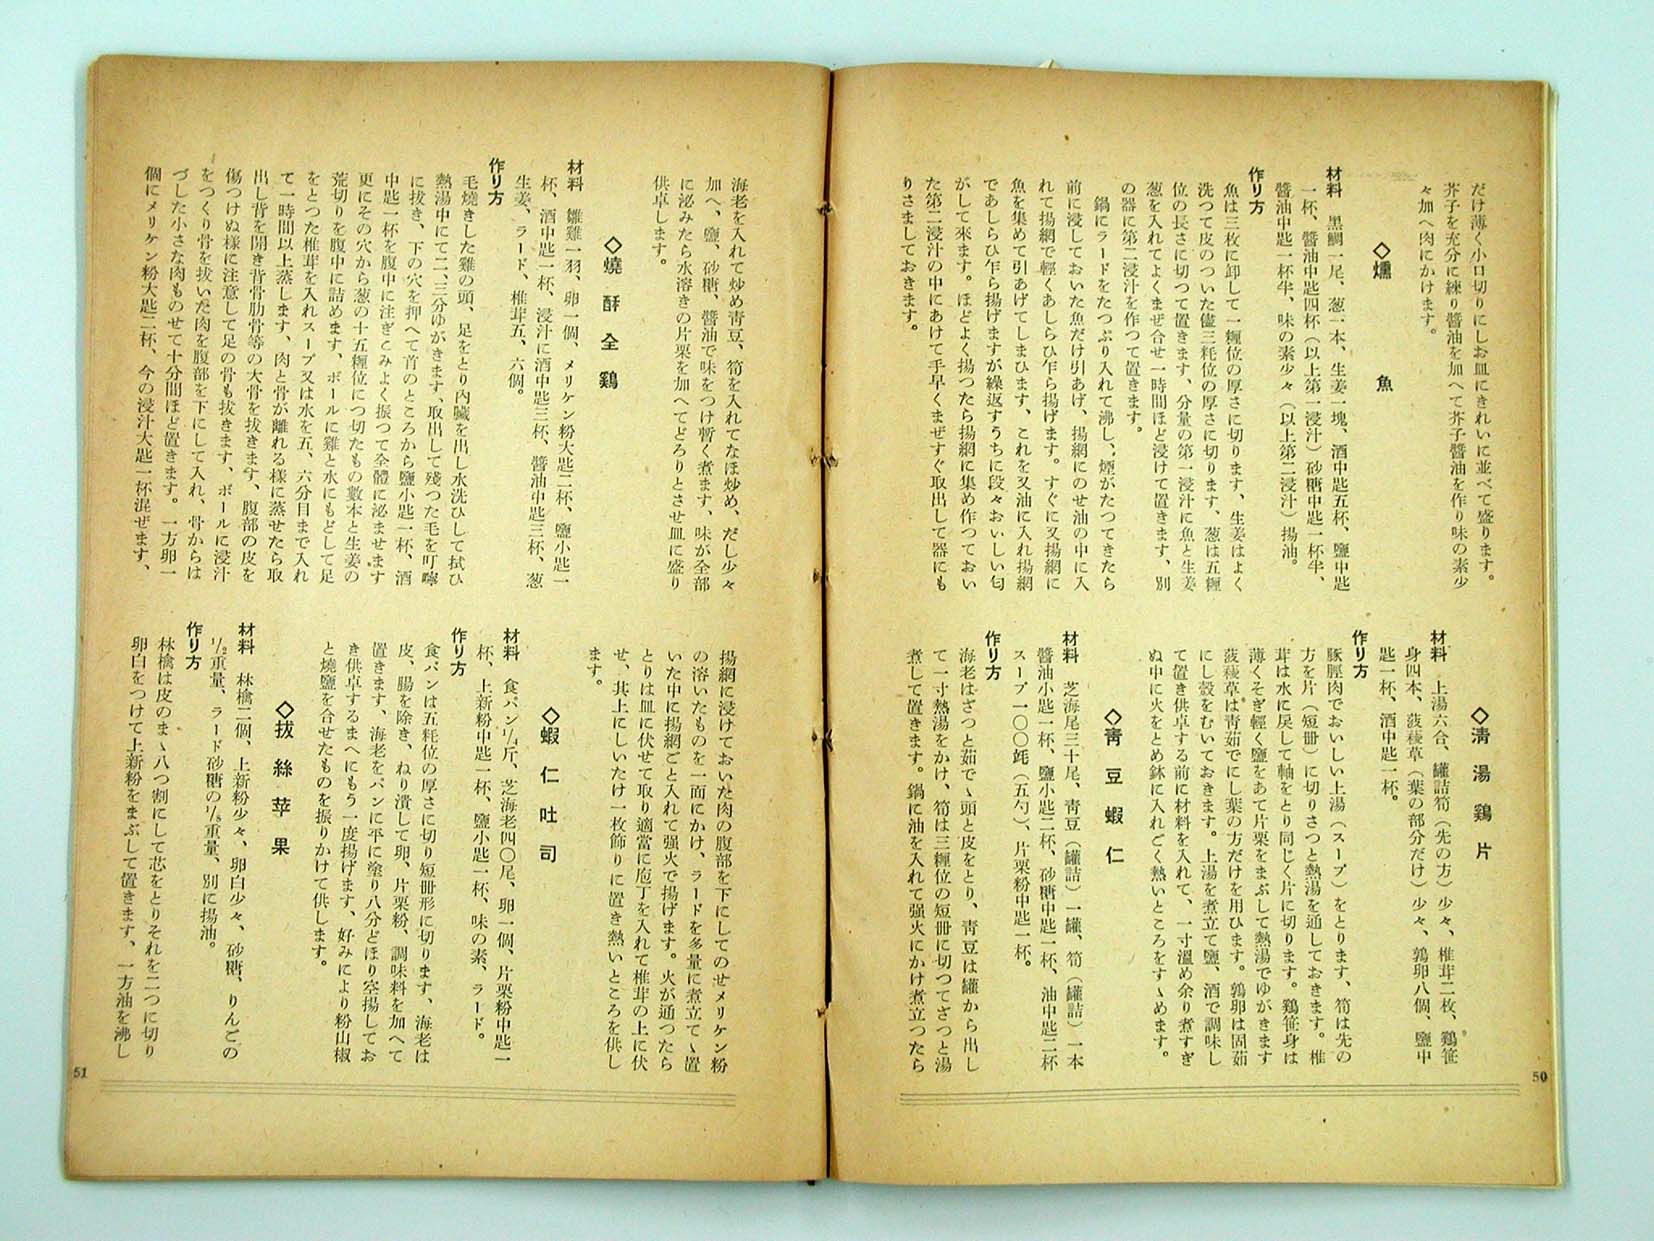 だけ薄く小口切りにしお皿にきれいに並べて盛ります。
芥子を充分に練り醬油を加へて芥子醬油を作り味の素少
々加へ肉にかけます。
◇燻魚
材料　黒鯛一尾、葱一本、生姜一塊、酒中匙五杯、鹽中匙
一杯、醬油中匙四杯（以上第一浸汁）砂糖中匙一杯半、
醬油中匙一杯半、味の素少々（以上第二浸汁）揚油。
作り方
魚は三枚に卸して一糎位の厚さに切ります、生姜はよく
洗つて皮のついた儘三粍位の厚さに切ります、葱は五糎
位の長さに切つて置きます、分量の第一浸汁に魚と生姜
葱を入れてよくまぜ合せ一時間ほど浸けて置きます、別
の器に第二浸汁を作つて置きます。
鍋にラードをたつぷり入れて沸し、煙がたつてきたら
前に浸しておいた魚だけ引あげ、揚網にのせ油の中に入
れて揚網で輕くあしらひ乍ら揚げます。すぐに又揚網に
魚を集めて引あげてしまひます、これを又油に入れ揚網
であしらひ乍ら揚げますが繰返すうちに段々おいしい匂
がして來ます。ほどよく揚つたら揚網に集め作つておい
た第二浸汁の中にあけて手早くまぜすぐ取出して器にも
りさましておきます。
◇淸湯鷄片
材料　上湯六合、罐詰筍（先の方）少々、椎茸二枚、鷄笹
身四本、菠薐草（葉の部分だけ）少々、鶉卵八個、鹽中
匙一杯、酒中匙一杯。
作り方
豚脛肉でおいしい上湯（スープ）をとります、筍は先の
方を片（短冊）に切りさつと熱湯を通しておきます。椎
茸は水に戻して軸をとり同じく片に切ります。鷄笹身は
薄くそぎ輕く鹽をあて片栗をまぶして熱湯でゆがきます
菠薐草は靑茹でにし葉の方だけを用ひます。鶉卵は固茹
にし殼をむいておきます。上湯を煮立て鹽、酒で調味し
て置き供卓する前に材料を入れて、一寸溫め余り煮すぎ
ぬ中に火をとめ鉢に入れごく熱いところをすゝめます。
◇靑豆蝦仁
材料　芝海尾三十尾、靑豆（罐詰）一罐、筍（罐詰）一本
醬油小匙一杯、鹽小匙二杯、砂糖中匙一杯、油中匙二杯
スープ一〇〇竓（五勺）、片栗粉中匙一杯。
作り方
海老はざつと茹でゝ頭と皮をとり、靑豆は罐から出し
て一寸熱湯をかけ、筍は三糎位の短冊に切つてざつと湯
煮して置きます。鍋に油を入れて强火にかけ煮立つたら
50
海老を入れて炒め靑豆、筍を入れてなほ炒め、だし少々
加へ、鹽、砂糖、醬油で味をつけ暫く煮ます、味が全部
に泌みたら水溶きの片栗を加へてどろりとさせ皿に盛り
供卓します。
◇燒酥全鷄
材料　雛雞一羽、卵一個、メリケン粉大匙二杯、鹽小匙一
杯、酒中匙一杯、浸汁に酒中匙三杯、醬油中匙三杯、葱
生姜、ラード、椎茸五、六個。
作り方
毛燒きした雞の頭、足をとり内臟を出し水洗ひして拭ひ
熱湯中にて二、三分ゆがきます、取出して殘つた毛を叮嚀
に拔き、下の穴を押へて首のところから鹽小匙一杯、酒
中匙一杯を腹中に注ぎこみよく振つて全體に泌ませます
更にその穴から葱の十五糎位につ切たもの數本と生姜の
荒切りを腹中に詰めます、ボールに雞と水にもどして足
をとつた椎茸を入れスープ又は水を五、六分目まで入れ
て一時間以上蒸します、肉と骨が離れる樣に蒸せたら取
出し背を開き背骨肋骨等の大骨を拔きます、腹部の皮を
傷つけぬ樣に注意して足の骨も拔きます、ボールに浸汁
をつくり骨を拔いた肉を腹部を下にして入れ、骨からは
づした小さな肉ものせて十分間ほど置きます。一方卵一
個にメリケン粉大匙二杯、今の浸汁大匙一杯混ぜます、
揚網に浸けておいた肉の腹部を下にしてのせメリケン粉
の溶いたものを一面にかけ、ラードを多量に煮立てゝ置
いた中に揚網ごと入れて强火で揚げます。火が通つたら
とりは皿に伏せて取り適當に庖丁を入れて椎茸の上に伏
せ、其上にしいたけ一枚飾りに置き熱いところを供し
ます。
◇蝦仁吐司
材料　食パン1/4斤、芝海老四〇尾、卵一個、片栗粉中匙一
杯、上新粉中匙一杯、鹽小匙一杯、味の素、ラード。
作り方
食パンは五粍位の厚さに切り短冊形に切ります、海老は
皮、腸を除き、ねり潰して卵、片栗粉、調味料を加へて
置きます、海老をパンに平に塗り八分どほり空揚してお
き供卓するまへにもう一度揚げます、好みにより粉山椒
と燒鹽を合せたものを振りかけて供します。
◇拔絲苹果
材料　林檎二個、上新粉少々、卵白少々、砂糖、りんごの
1/2重量、ラード砂糖の1/8重量、別に揚油。
作り方
林檎は皮のまゝ八つ割にして芯をとりそれを二つに切り
卵白をつけて上新粉をまぶして置きます、一方油を沸し
51